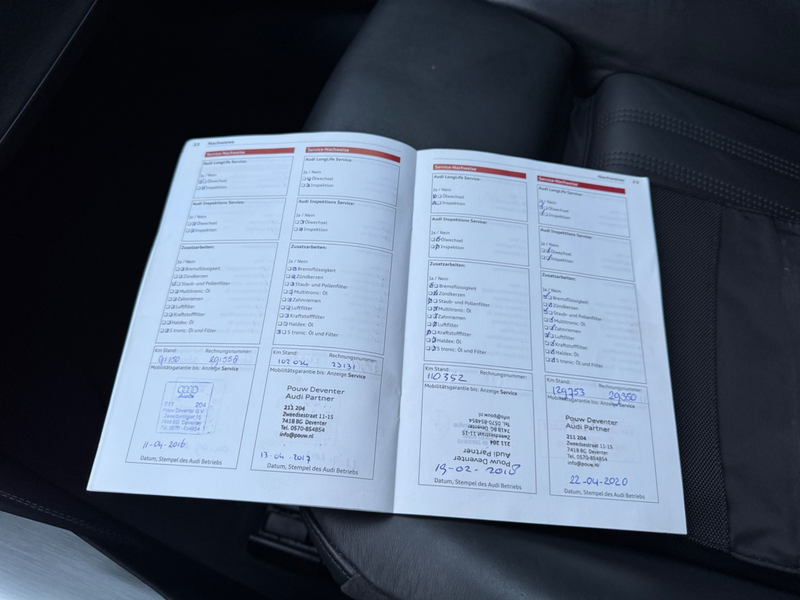 Nachweise
Service-Nachweise
Audi LongLife Service:
Ja / Nein
Ölwechsel
Inspektion
Audi Inspektions Service:
Ja / Nein
Ölwechsel
Inspektion
Zusatzarbeiten:
Ja / Nein
Bremsflüssigkeit
Zündkerzen
Staub- und Pollenfilter
Multitronic: Öl
Zahnriemen
Luftfilter
Kraftstofffilter
Haldex: Öl
S tronic: Öl und Filter
Km Stand:
Rechnungsnummer:
Mobilitätsgarantie bis: Anzeige Service
Audi
211 204
Pouw Deventer
Zweedsestraat
7418 BG Deventer
11-04-2016
Datum, Stempel des Audi Betriebs
Service-Nachweise
Audi LongLife Service:
Ja / Nein
Ölwechsel
Inspektion
Audi Inspektions Service:
Ja / Nein
Ölwechsel
Inspektion
Zusatzarbeiten:
Ja / Nein
Bremsflüssigkeit
Zündkerzen
Staub- und Pollenfilter
Multitronic: Öl
Zahnriemen
Luftfilter
Kraftstofffilter
Haldex: Öl
S tronic: Öl und Filter
Km Stand:
Rechnungsnummer:
Mobilitätsgarantie bis: Anzeige Service
Pouw Deventer
Audi Partner
211 204
Zweedsestraat 11-15
7418 BG Deventer
Tel. 0570-854854
info@pouw.nl
13-04-2017
Datum, Stempel des Audi Betriebs
Service-Nachweise
Audi LongLife Service:
Ja / Nein
Ölwechsel
Inspektion
Audi Inspektions Service:
Ja / Nein
Ölwechsel
Inspektion
Zusatzarbeiten:
Ja / Nein
Bremsflüssigkeit
Zündkerzen
Staub- und Pollenfilter
Multitronic: Öl
Zahnriemen
Luftfilter
Kraftstofffilter
Haldex: Öl
S tronic: Öl und Filter
Km Stand:
Rechnungsnummer:
110352
Mobilitätsgarantie bis: Anzeige Service
Pouw Deventer
Audi Partner
211 204
Zweedsestraat 11-15
7418 BG Deventer
Tel. 0570-854854
info@pouw.nl
Datum, Stempel des Audi Betriebs
Nachweise
Service-Nachweise
Audi LongLife Service:
Ja / Nein
Ölwechsel
Inspektion
Audi Inspektions Service:
Ja / Nein
Ölwechsel
Inspektion
Zusatzarbeiten:
Ja / Nein
Bremsflüssigkeit
Zündkerzen
Staub- und Pollenfilter
Multitronic: Öl
Zahnriemen
Luftfilter
Kraftstofffilter
Haldex: Öl
S tronic: Öl und Filter
Km Stand:
Rechnungsnummer:
129753 29350
Mobilitätsgarantie bis: Anzeige Service
Pouw Deventer
Audi Partner
211 204
Zweedsestraat 11-15
7418 BG Deventer
Tel. 0570-854854
info@pouw.nl
22-04-2020
Datum, Stempel des Audi Betriebs